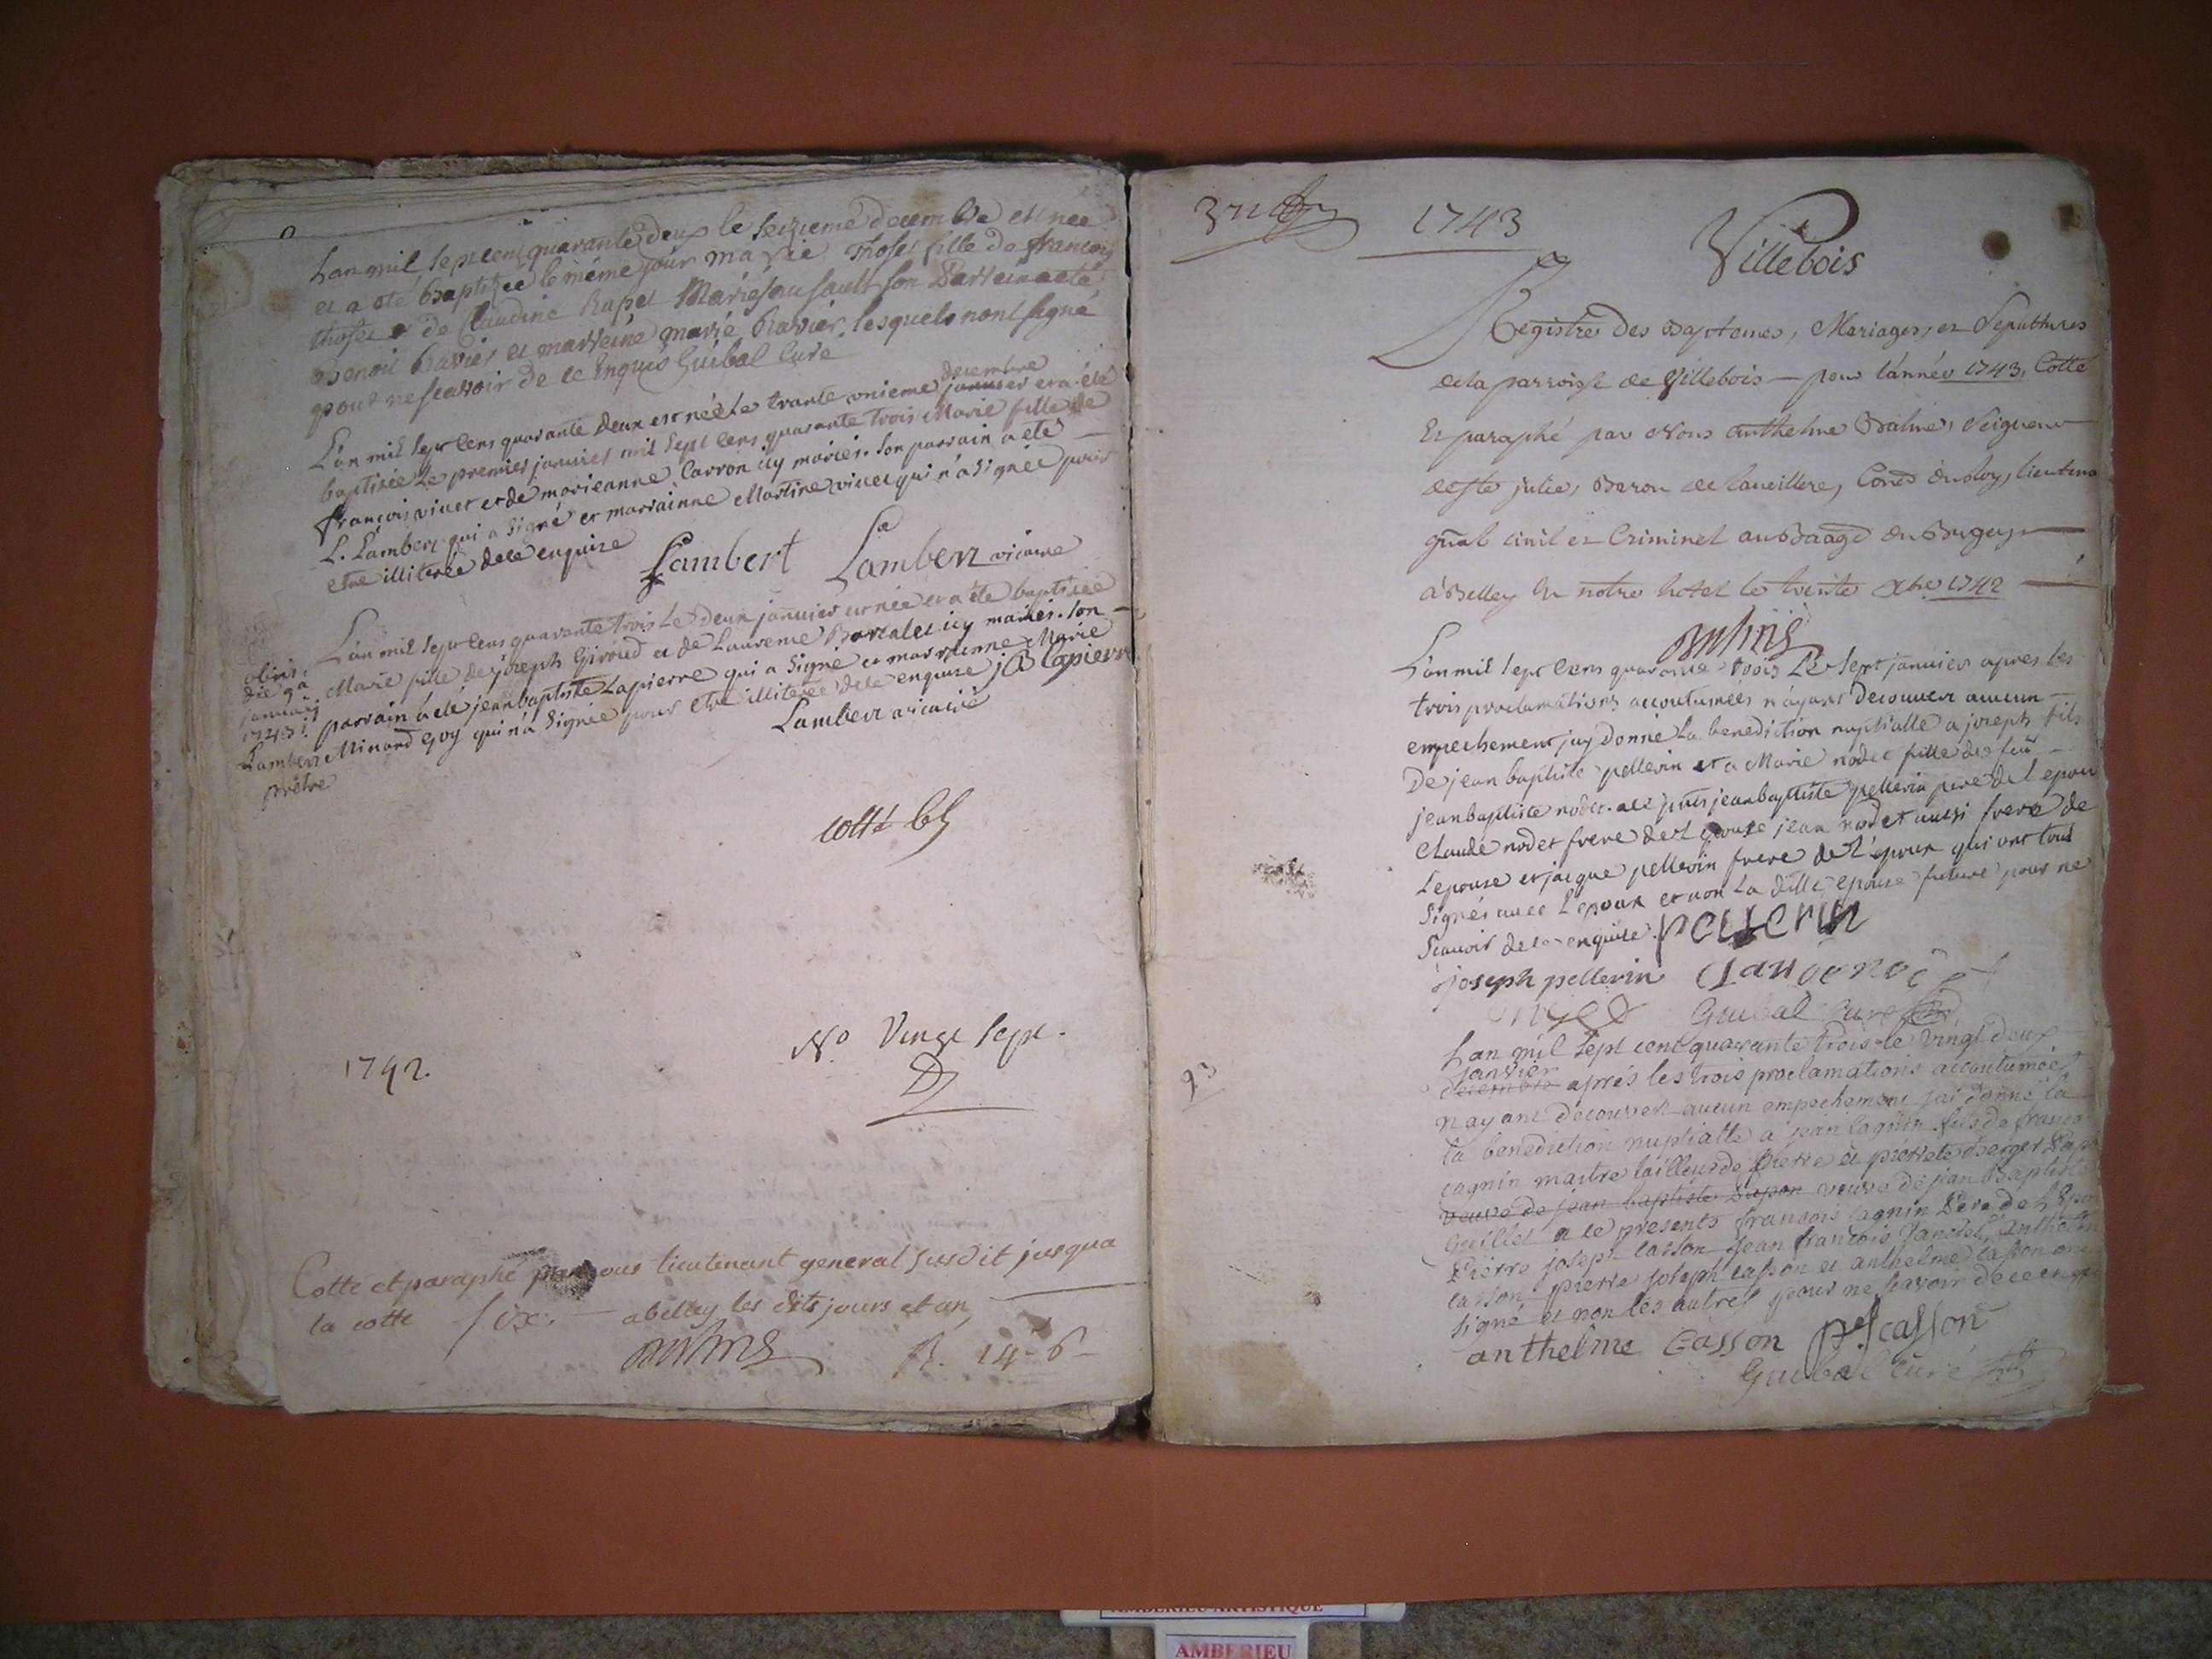 Lan mil sept cent quarante deux le seizieme decembre est née
et a été baptizée le même jour marie Thoset fille de françois
thoset et de Claudine Rapet Mariés au sault son Parrein a eté
Benoit Ravier et marreine marie Ravier lesquels nont signé
pour ne scavoir de ce Enquis Guibal Curé
decembre
L'an mil sept cens quarante deux est née le trante unieme janvier et a été
baptisée Le premier janvier mil sept cens quarante trois Marie fille de
françois vivet et de marieanne Carron icy mariés. son parrain a eté
L. Lambert qui a signé et marrainne Martine vivet qui n'a signée pour
etre illiterée de ce enquise
Lambert Lambert vicaire
L'an mil sept cens quarante trois Le deux janvier est née et a eté baptisée
Marie fille de joseph Giroud et de Laurence Bortalet icy mariés. son
parrain a eté jean baptiste Lapierre qui a signé et marrainne Marie
Minard Goy qui n'a signée pour etre illiterée de ce enquise JB lapierre
Lambert vicaire
obiit
die 9a
januarij
1743
Lambert
prêtre
cotté
1742.
No Vingt sept.
Cotté et paraphé par nous lieutenant general susdit jusqua
la cotte six. a belley les dits jours et an,
14-6-
1743
Villebois
Registre des Baptemes, Mariages, et Sepultures
de la parroisse de Villebois pour l'année 1743, Cotté
Et paraphé par Nous anthelme Balme, Seigneur
de Ste julie, Baron de , Cons du Roy, lieutena
gnal civil et Criminel au Baage du Bugey
à Belley en notre hotel le trente xbre 1742
L'an mil sept cens quarante trois Le sept janvier apres les
trois proclamations accoutumées n'ayant decouvert aucun
empechement j'ay donné La benediction nuptialle a joseph fils
De jean baptiste pellerin et a Marie nodet fille de feu
jean baptiste nodet. a ce pnts jean baptiste pellerin pere de L epoux
claude nodet frere de L epouse jean nodet aussi frere de
L epouse et jacque pellerin frere de L'epoux qui ont tous
signés avec L'epoux et non La ditte epouse future pour ne
scavoir de ce enquise. pellerin
joseph pellerin Claude nodet
Guibal Curé
Lan mil sept cent quarante trois le vingt deux
janvier
decembre aprés les trois proclamations accoutumées
nayant decouvert aucun empechement jai donné la
la benediction nuptialle a jean cagnin fils de franço
cagnin maitre tailleur de Pierre et pierrete Berger
veuve de jean baptiste Dupon veuve de jean Baptiste
Guillet a ce presents françois cagnin Pere de L'Epou
Pierre joseph casson jean françois
casson pierre joseph casson et anthelme casson ont
signé et non les autres pour ne scavoir de ce enquis
anthelme Casson casson
Guibal curé
AMBERIEU ARTISTIQUE
AMBERIEU